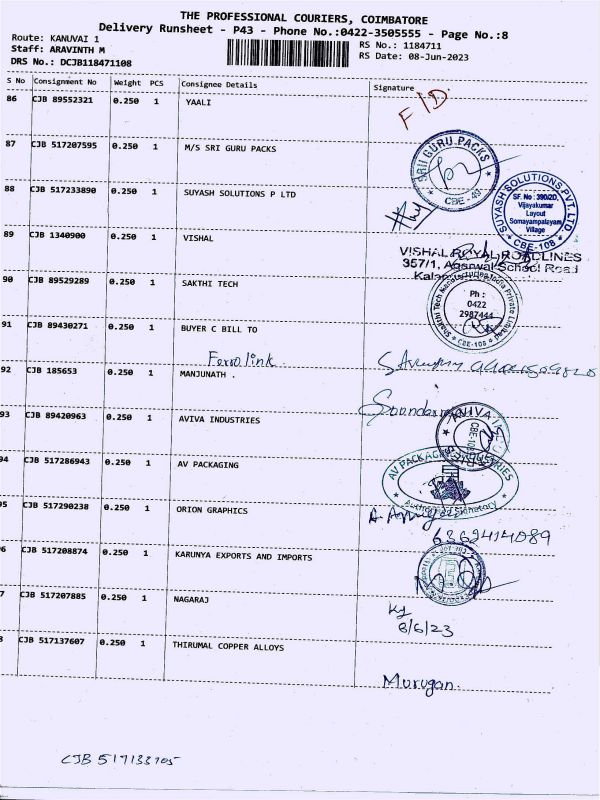 THE PROFESSIONAL COURIERS, COIMBATORE
Delivery Runsheet - P43 - Phone No.:0422-3505555 - Page No.:8
Route: KANUVAI 1
RS No.: 1184711
Staff: ARAVINTH M
RS Date: 08-Jun-2023
DRS No.: DCJB118471108
S No Consignment No Weight PCS Consignee Details Signature
86 CJB 89552321 0.250 1 YAALI
F/D
87 CJB 517207595 0.250 1 M/S SRI GURU PACKS
SRII GURU PACKS
CBE - 49
88 CJB 517233890 0.250 1 SUYASH SOLUTIONS P LTD
SUYASH SOLUTIONS PVT. LTD
SF. No : 390/2D,
Vijayakumar
Layout
Somayampalayam
Village
CBE-108
89 CJB 1340900 0.250 1 VISHAL
VISHAL ROYAL ROADLINES
357/1, Agarwal School Road
90 CJB 89529289 0.250 1 SAKTHI TECH
Ph :
0422
2987444
CBE-108
91 CJB 89430271 0.250 1 BUYER C BILL TO
Ferrolink
92 CJB 185653 0.250 1 MANJUNATH .
93 CJB 89420963 0.250 1 AVIVA INDUSTRIES
94 CJB 517286943 0.250 1 AV PACKAGING
AV PACKAGING INDUSTRIES
Authorised Signatory
95 CJB 517290238 0.250 1 ORION GRAPHICS
6369414089
96 CJB 517208874 0.250 1 KARUNYA EXPORTS AND IMPORTS
7 CJB 517207885 0.250 1 NAGARAJ
8/6/23
8 CJB 517137607 0.250 1 THIRUMAL COPPER ALLOYS
Murugan.
CJB 517133705